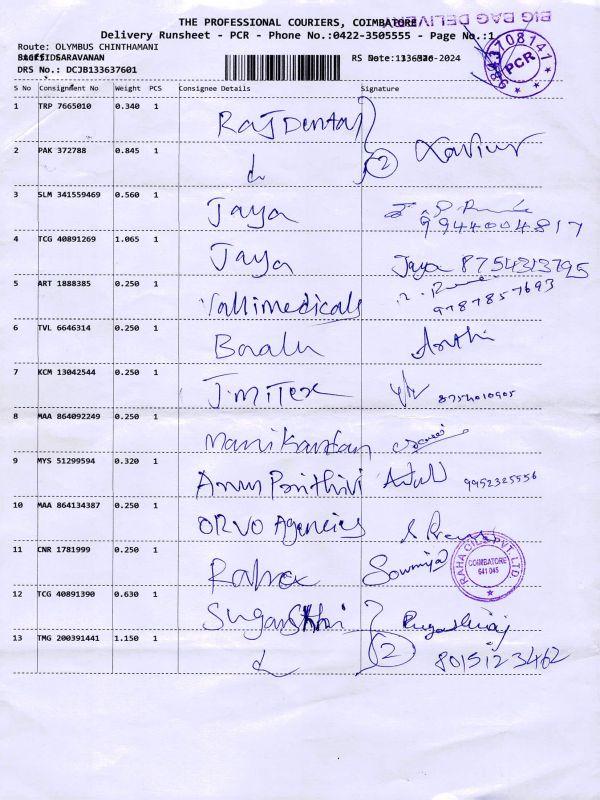 THE PROFESSIONAL COURIERS, COIMBATORE
BIG BAG DELIVE
Delivery Runsheet - PCR - Phone No.:0422-3505555 - Page No.:1
Route: OLYMBUS CHINTHAMANI
SARAVANAN
RS Date: -2024
DRS No.: DCJB133637601
PCR
S No Consignment No Weight PCS Consignee Details Signature
1 TRP 7665010 0.340 1 Raj Dental
2 PAK 372788 0.845 1 2 Xavier
3 SLM 341559469 0.560 1 Jaya 9944004817
4 TCG 40891269 1.065 1 Jaya Jaya 8754313795
5 ART 1888385 0.250 1 Vallimedicals 9787857693
6 TVL 6646314 0.250 1 Baalu
7 KCM 13042544 0.250 1 J.miTex 8754010905
8 MAA 864092249 0.250 1 Manikandan
9 MYS 51299594 0.320 1 Arun Prithivi 9952325556
10 MAA 864134387 0.250 1 ORVO Agencies
11 CNR 1781999 0.250 1 Raha Sowmiya
RAHA PVT. LTD
COIMBATORE
641 045
12 TCG 40891390 0.630 1
13 TMG 200391441 1.150 1 2 8015123462